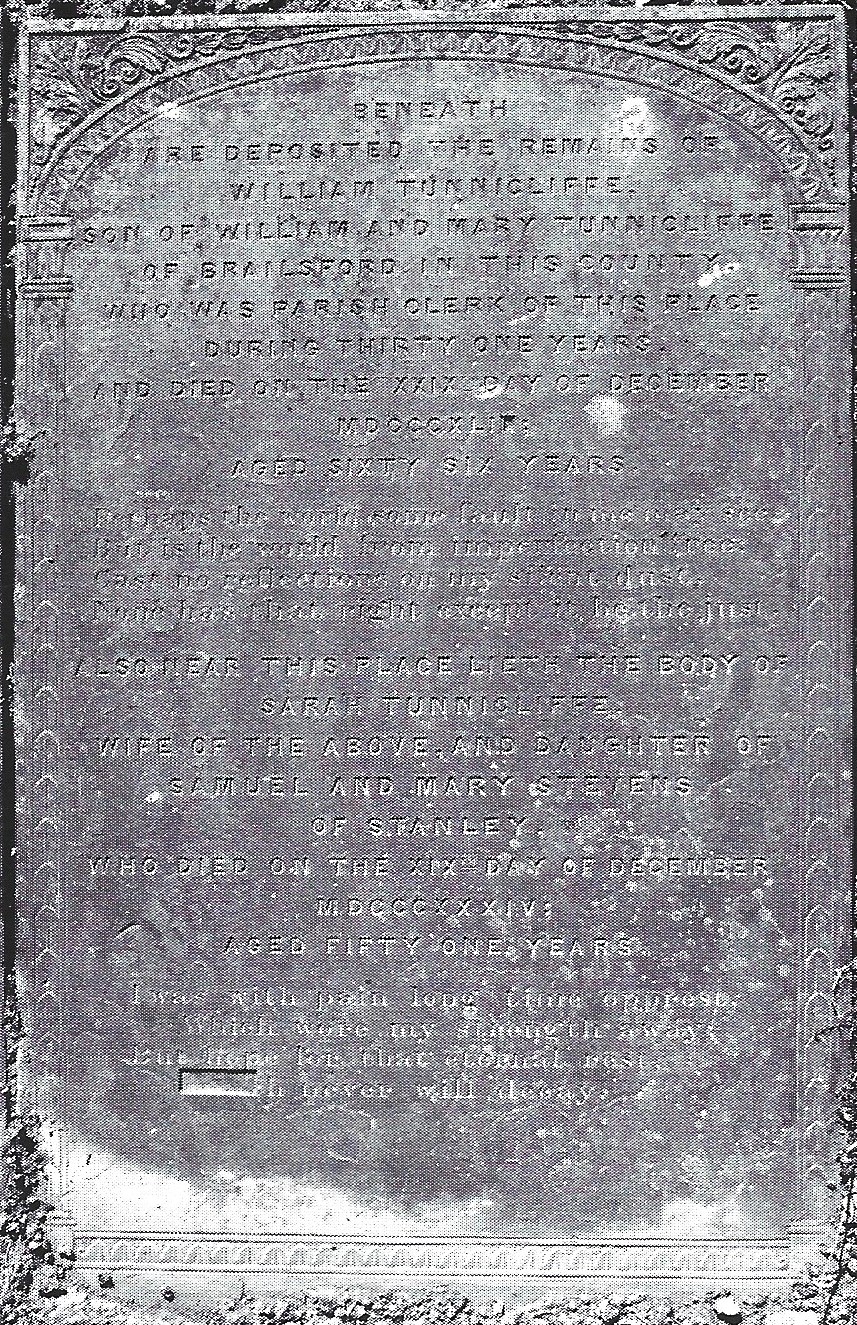 BENEATH
ARE DEPOSITED THE REMAINS OF
WILLIAM TUNNICLIFFE,
SON OF WILLIAM AND MARY TUNNICLIFFE
OF BRAILSFORD IN THIS COUNTY
WHO WAS PARISH CLERK OF THIS PLACE
DURING THIRTY ONE YEARS.
AND DIED ON THE XXIX DAY OF DECEMBER
AGED SIXTY SIX YEARS.
Perhaps the world some fault in me may see,
But is the world from imperfection free:
Cast no reflections on my silent dust,
None has that right except it be the just.
ALSO NEAR THIS PLACE LIETH THE BODY OF
SARAH TUNNICLIFFE,
WIFE OF THE ABOVE, AND DAUGHTER OF
SAMUEL AND MARY STEVENS
OF STANLEY,
WHO DIED ON THE XIXTH DAY OF DECEMBER
MDCCCXXXIV;
AGED FIFTY ONE YEARS.
I was with pain long time opprest,
Which wore my strength away;
But hope for that eternal rest,
never will decay.